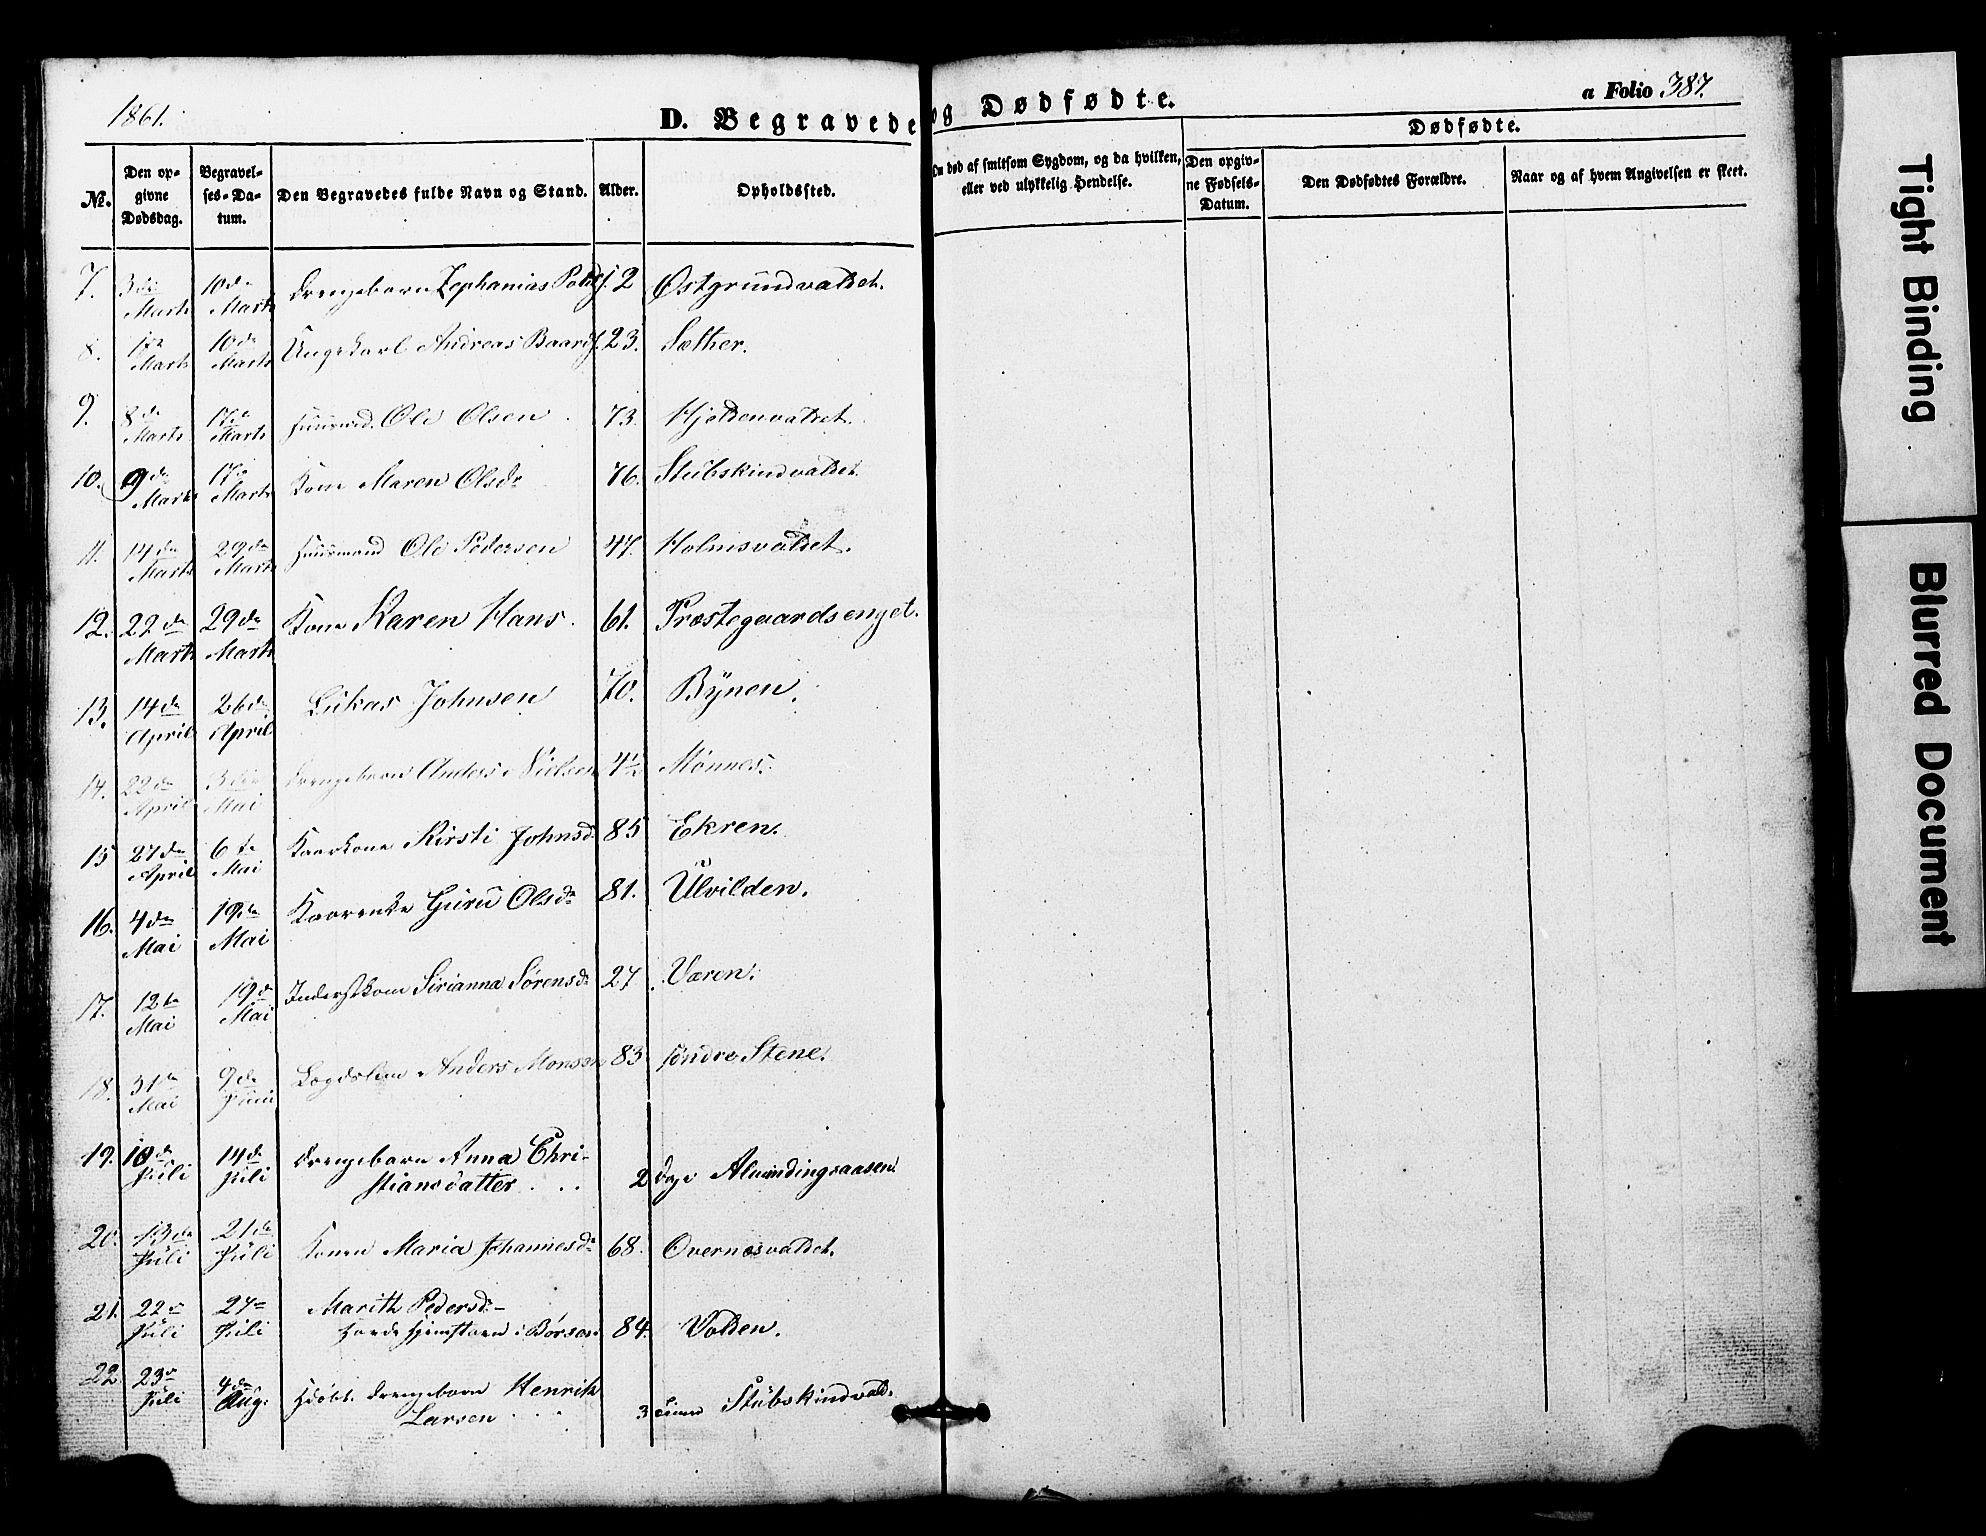 1861.
D. Begravede og Dødfødte.
a Folio 387.
Dødfødte.
№.
Den opgivne Dødsdag.
Begravelses-Datum.
Den Begravedes fulde Navn og Stand.
Alder.
Opholdssted.
Om død af smitsom Sygdom, og da hvilken, eller ved ulykkelig Hendelse.
Den opgivne Fødsels-Datum.
Den Dødfødtes Forældre.
Naar og af hvem Angivelsen er skeet.
7. 3die Marts 10de Marts Drengebarn Zephanias 2 Østgrundvaldet.
8. 1ste Marts 10de Marts Ungekarl Andreas Baards. 23. Sæther.
9. 8de Marts 17de Marts Huusmd. Ole Olsen 73. Hjeldenvaldet.
10. 9de Marts 17de Marts Kone Maren Olsdr 76. Stubskindvaldet.
11. 14de Marts 29de Marts Huusmand Ole Pedersen 47. Holmsvaldet.
12. 22de Marts 29de Marts Kone Karen Hans. 61. Præstegaardsenget.
13. 14de April 26de April Lukas Johnsen 70. Bynen.
14. 22de April 3die Mai Drengebarn Anders Nielsen 4½ Mønnes.
15 27de April 6te Mai Kaarkone Kirsti Johnsd. 85 Ekren.
16. 4de Mai 19de Mai Kaarenke Guru Olsdr 81. Ulvilden.
17. 12te Mai 19de Mai Inderstkone Sirianna Sørensdr 27 Væren.
18. 31te Mai 9de Juni Lægdslem Anders Monssen 83 søndre Stene.
19. 10de Juli 14de Juli Drengebarn Anna Chri-
stiansdatter . . . 2 Dage Almindingsaasen.
20. 13de Juli 21de Juli Konen Maria Johannesdr 68. Overnesvaldet.
21. 22de Juli 27de Juli Marith Pedersdr-
i Børsen. 84. Volden.
22 23de Juli 4de Aug. Hdøbt. Drengebarn Henrik
Larsen . . . 3 Stubskindvald.
Tight Binding
Blurred Document